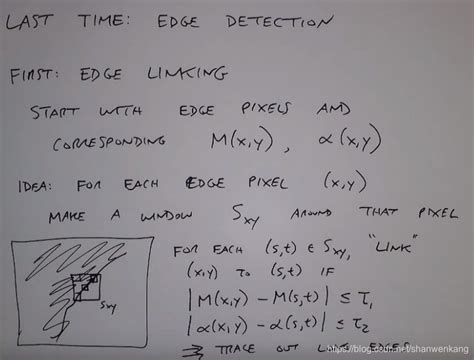 LAST TIME: EDGE DETECTION
FIRST: EDGE LINKING
START WITH EDGE PIXELS AND
CORRESPONDING M(x,y), α(x,y)
IDEA: FOR EACH EDGE PIXEL (x,y)
MAKE A WINDOW Sxy AROUND THAT PIXEL
FOR EACH (s,t) ∈ Sxy, "LINK"
(x,y) TO (s,t) IF
|M(x,y) - M(s,t)| ≤ τ1
|α(x,y) - α(s,t)| ≤ τ2
→ TRACE OUT LIKE EDGES
Sxy
https://blog.csdn.net/shanwenkang